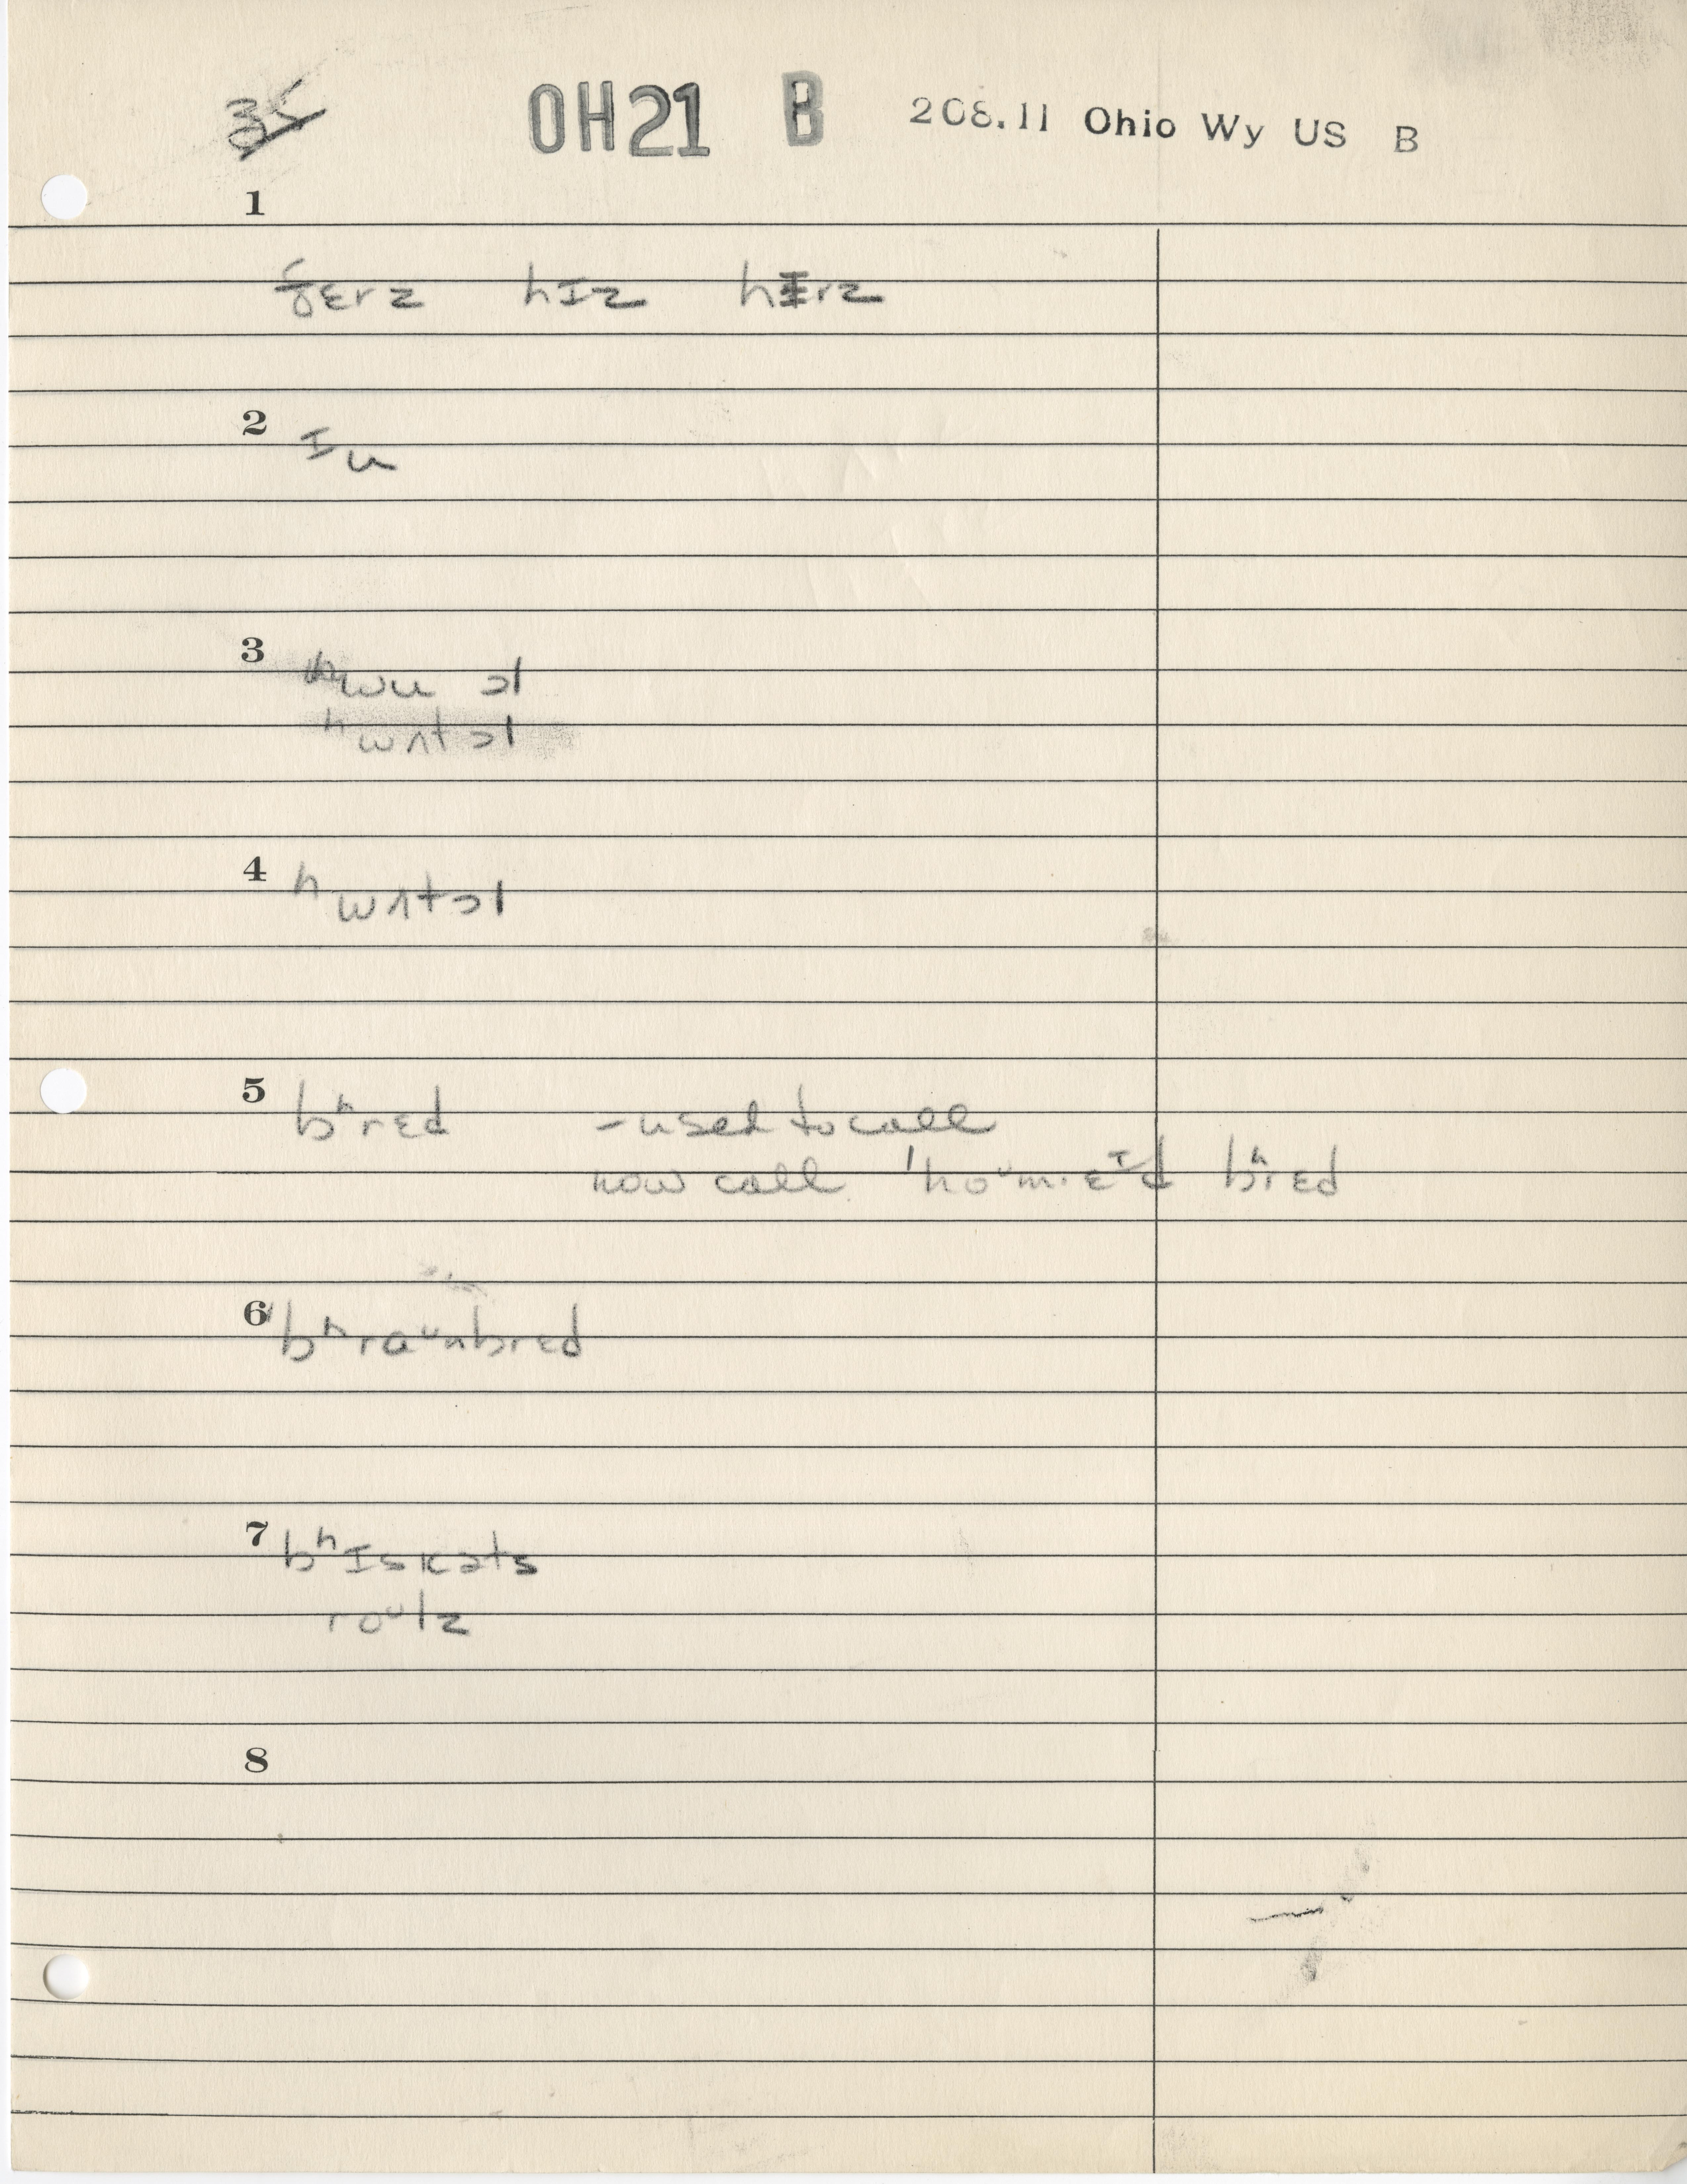 35
OH21 B 208.11 Ohio Wy US B
1
ðɛrz hɪz hɪrz
2 ɪu
3 ʰwu ɔl
ʰwʌt ɔl
4 ʰwʌtɔl
5 bʰrɛd - used to call
now call ˈhoᵘm·ɛᶦd bʰrɛd
6 ˈbʰraᵘnbrɛd
7 bʰɪskəts
roᵘlz
8